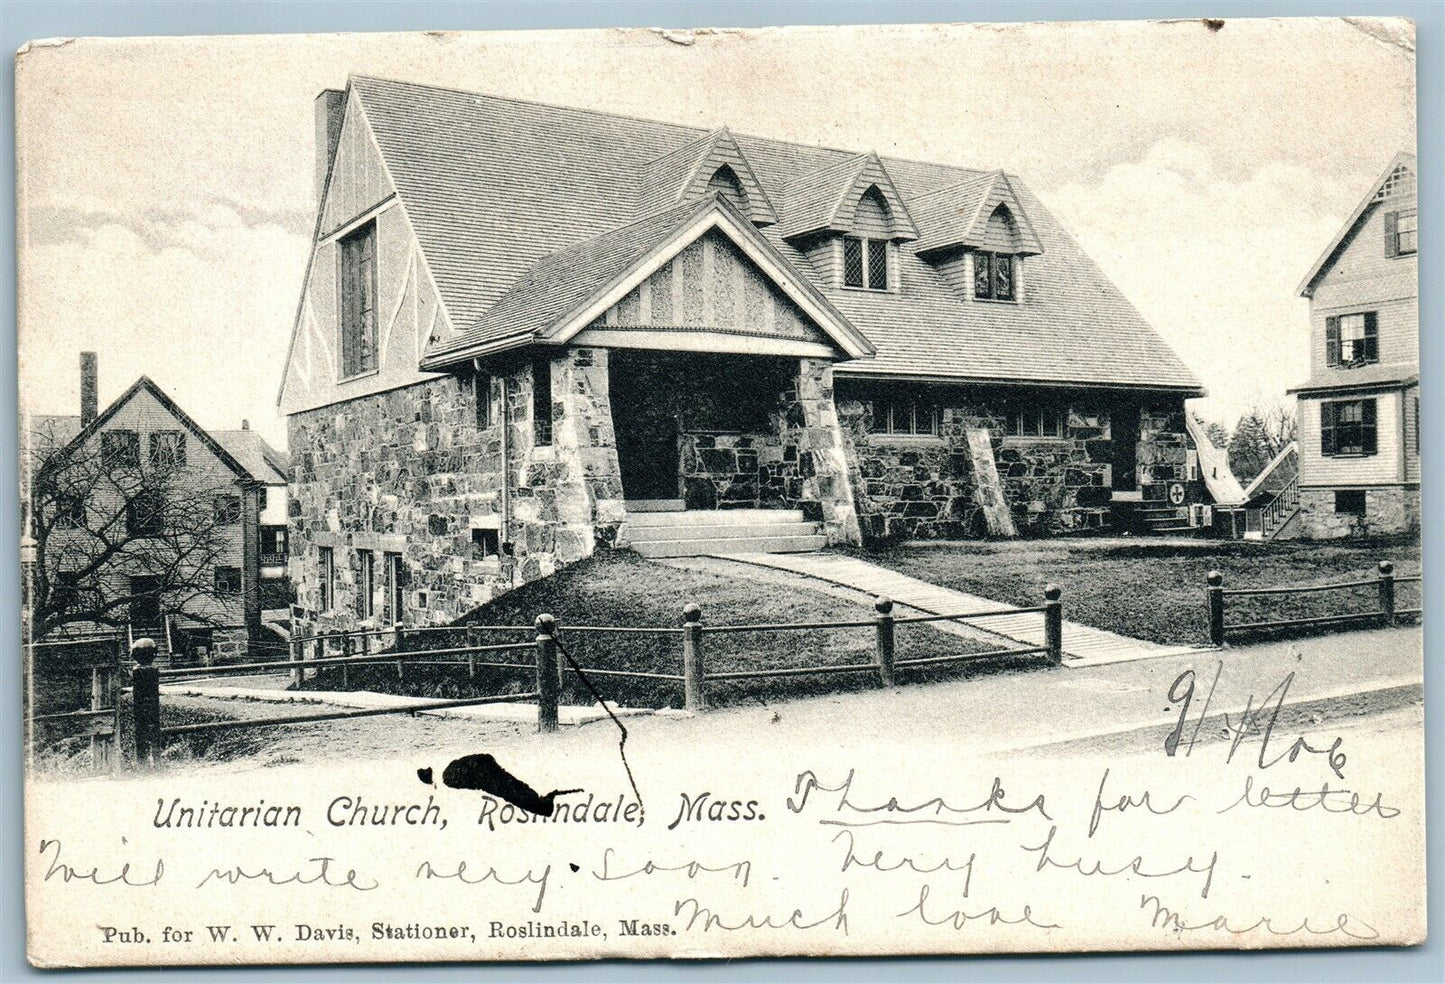 9/ 06
Unitarian Church, Roslindale, Mass. Thanks for letter
Will write very soon. Very busy.
Pub. for W. W. Davis, Stationer, Roslindale, Mass. Much love Marie